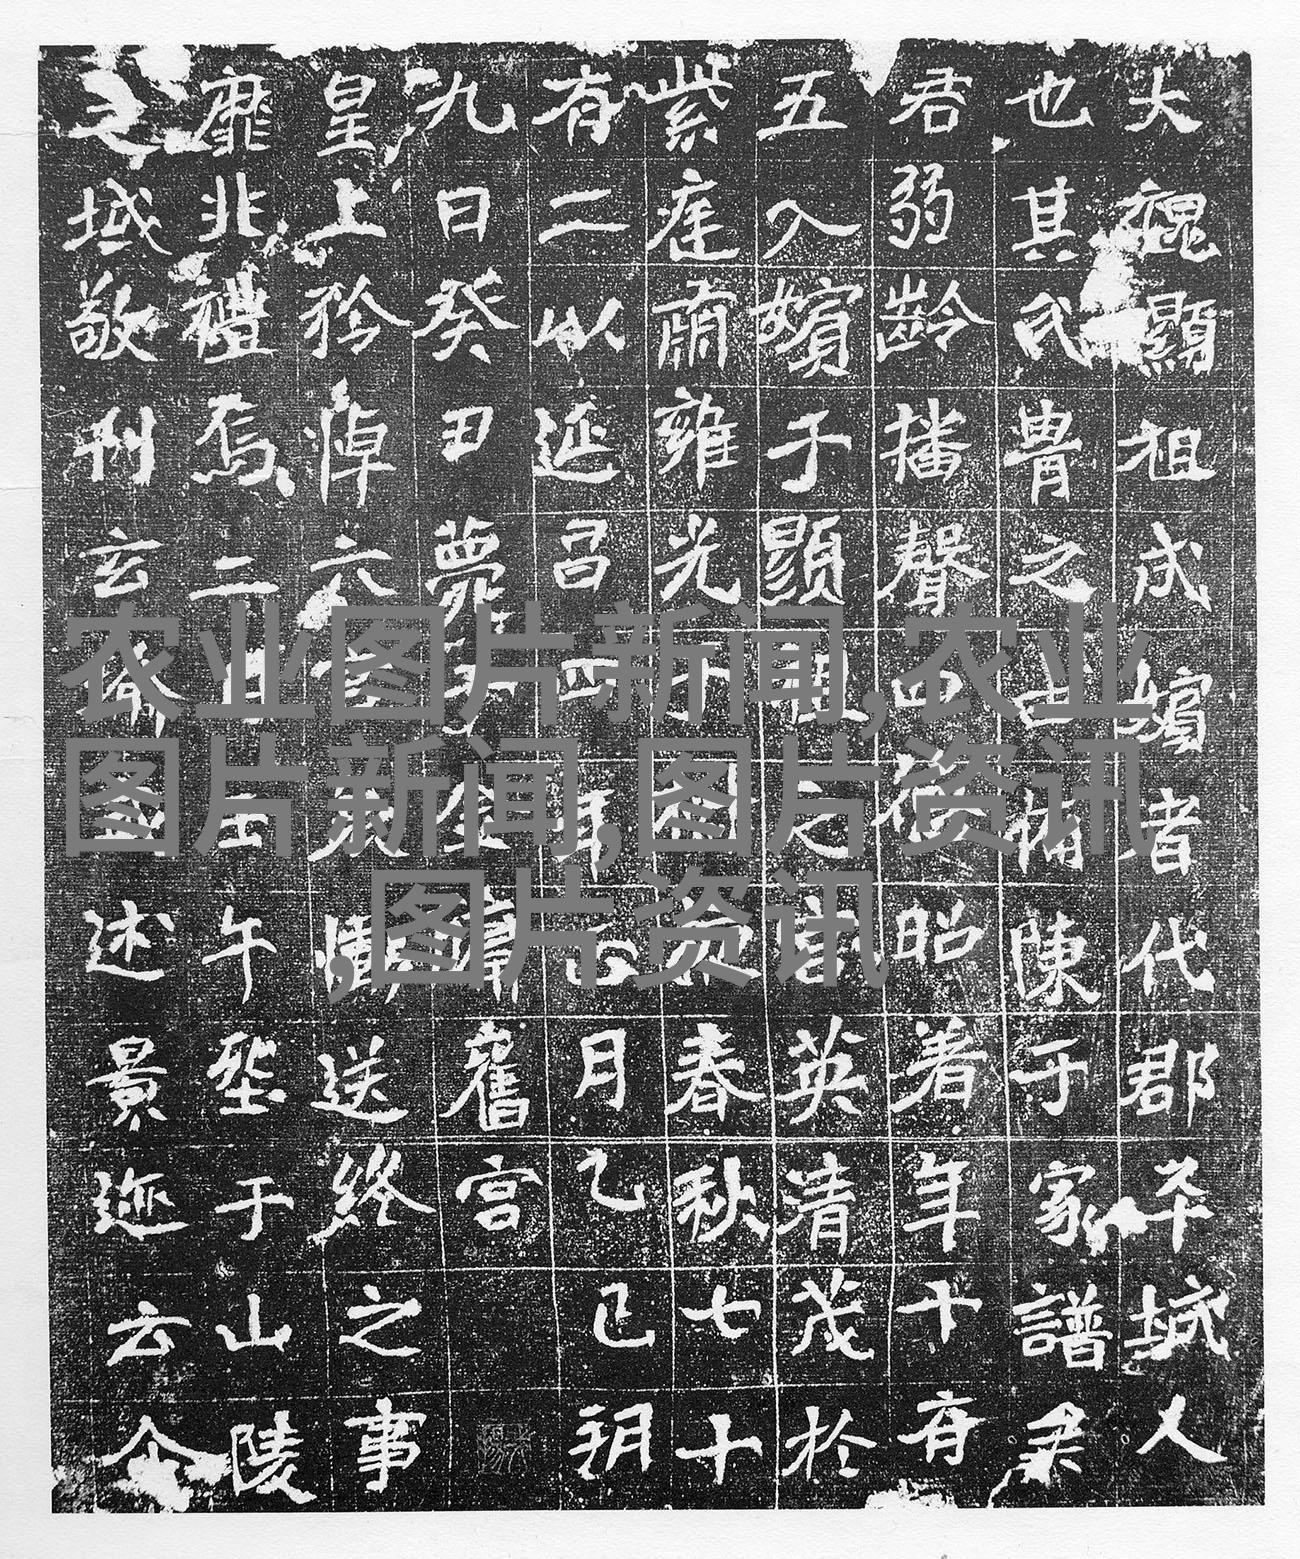 大魏顯祖成嬪者代郡平城人
也其氏胄之備陳于家譜矣
君弱齡播聲四德昭著年十有
五入嬪于顯祖之宮英清茂於
紫庭肅雍光于春秋七十
有二以延昌四年正月乙巳朔
九日癸丑薨于金墉舊宮
皇上矜悼六宮哀慟送終之事
靡非禮焉二月壬午堊于山陵
之域敬刊玄述景迹云尒
农业图片新闻,农业
图片新闻,图片资讯
,图片资讯